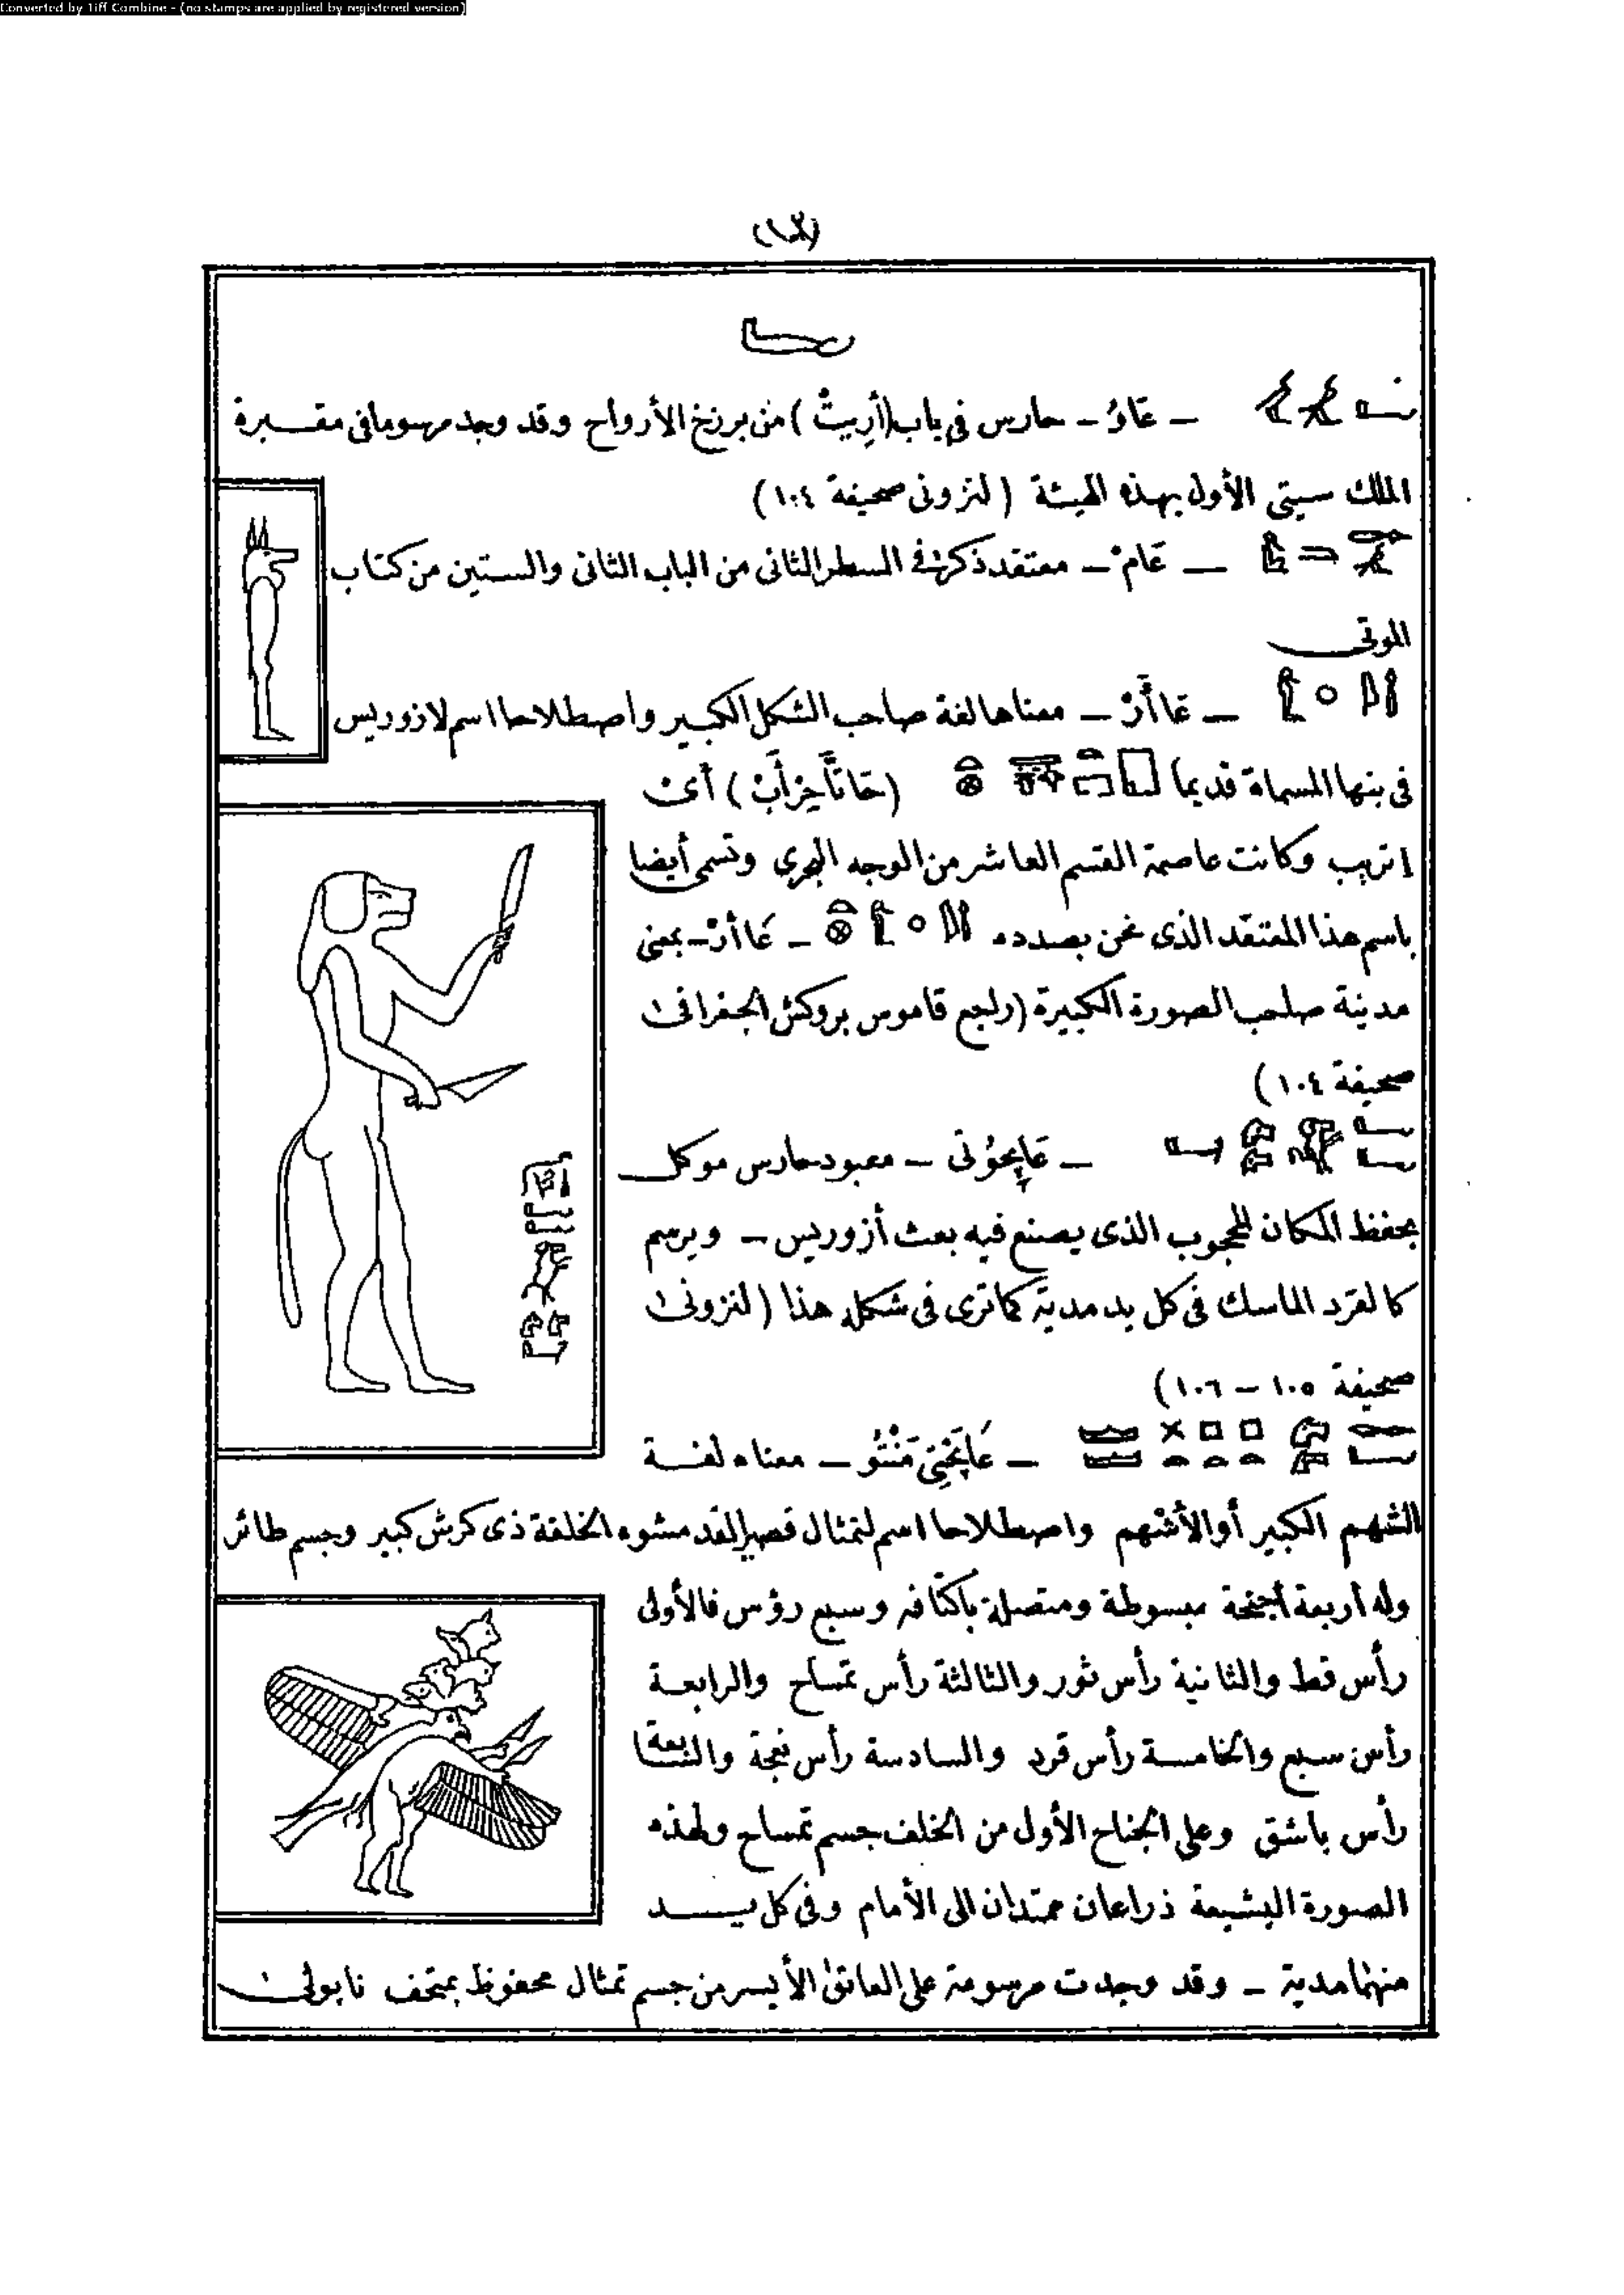 Converted by Tiff Combine - (no stamps are applied by registered version)
ــ عَاوُ ــ حارس فى باب (أَرِيتْ) من برزخ الأرواح وقد وجد مرسوما فى مقــبرة
الملك سيتى الأول بهذه الهيئة (لنزونى صحيفة ١٠٤)
ــ عَامْ ــ معتقد ذكر فى السطر الثانى من الباب الثانى والستين من كتاب
الموتى
ــ عَاأَرْ ــ معناها لغة صاحب الشكل الكبير واصطلاحا اسم لازوريس
فى بنها المسماة قديما (حَاتَأَحِرْأَبْ) أى
إتريب وكانت عاصمة القسم العاشر من الوجه البحرى وتسمى أيضا
باسم هذا المعتقد الذى نحن بصدده ــ عَاأَرْ ــ بمعنى
مدينة صاحب الصورة الكبيرة (راجع قاموس بروكش الجغرافى
صحيفة ١٠٤)
ــ معبود حارس موكل
بحفظ المكان المحجوب الذى يصنع فيه بعث أزوريس ــ ويرسم
كالقرد الماسك فى كل يد مدية كما ترى فى شكله هذا (لنزونى
صحيفة ١٠٥ ــ ١٠٦)
ــ معناه لغــة
الشهم الكبير أو الأشهم واصطلاحا اسم لتمثال قصير القد مشوه الخلقة ذى كرش كبير وجسم طائر
وله أربعة أجنحة مبسوطة ومتصلة بأكتافه وسبع رؤس فالأولى
رأس قط والثانية رأس ثور والثالثة رأس تمساح والرابعــة
رأس سبع والخامسة رأس قرد والسادسة رأس نعجة والسابعة
رأس باشق وعلى الجناح الأول من الخلف جسم تمساح ولهذه
الصورة البشيعة ذراعان ممتدان الى الأمام وفى كل يــد
منهما مدية ــ وقد وجدت مرسومة على العاتق الأيسر من جسم تمثال محفوظ بمتحف نابولى